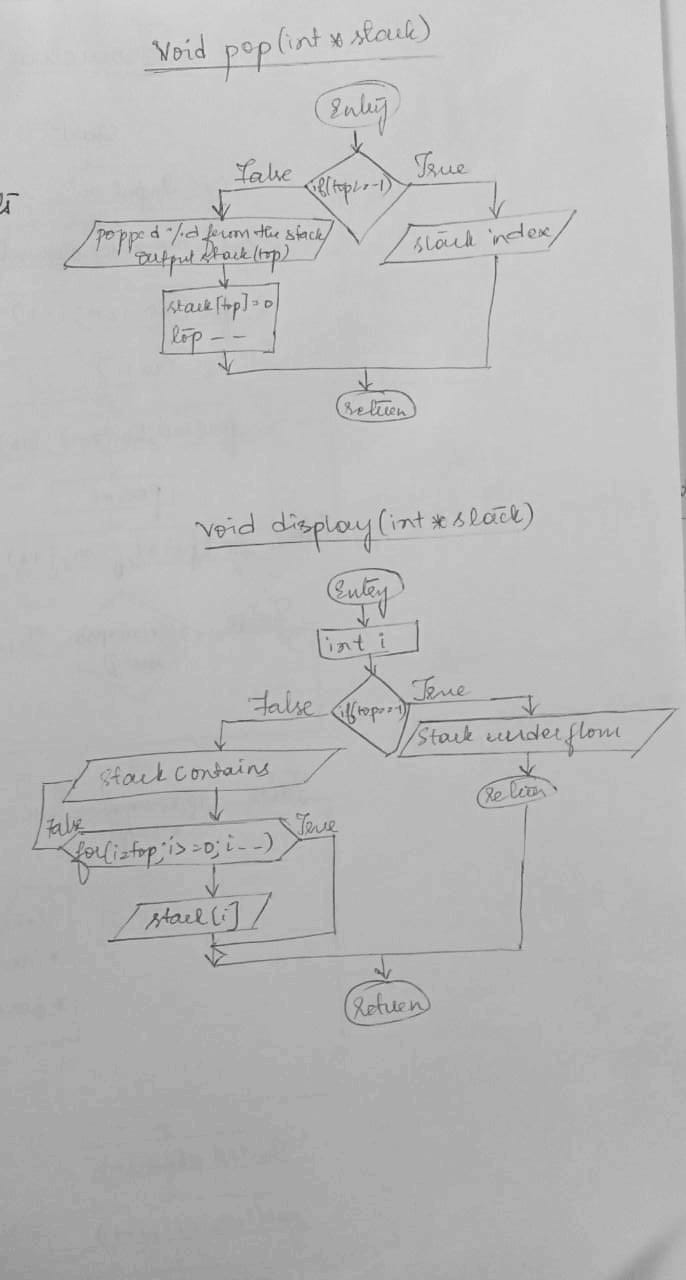 Void pop(int * stack)
Entry
False
True
if(top==-1)
popped %d from the stack
output stack(top)
stack index
stack[top]=0
top - -
return
void display(int * stack)
Entry
int i
False
True
if(top==-1)
Stack underflow
stack contains
return
False
True
for(i=top;i>=0;i--)
stack[i]
Return